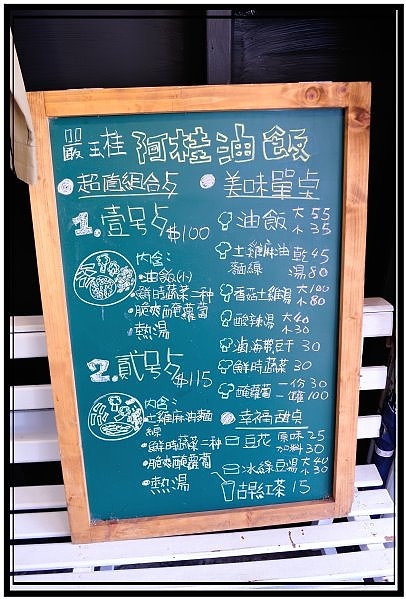 嚴玉桂 阿桂油飯
超值組合ㄎ
1.壹号ㄎ $100
內含:
•油飯(小)
•鮮時蔬菜二種
•脆爽醃蘿蔔
•熱湯
2.貳号ㄎ $115
內含:
土雞麻油麵
線
•鮮時蔬菜二種
•脆爽醃蘿蔔
•熱湯
美味單点
油飯 大55
小35
土雞麻油 乾45
麵線 湯80
香菇土雞湯 大100
小80
酸辣湯 大40
小30
滷海帶豆干 30
鮮時蔬菜 30
醃蘿蔔 一份 30
一罐 100
幸福甜点
豆花 原味25
加料30
冰綠豆湯 大40
小30
古早紅茶 15